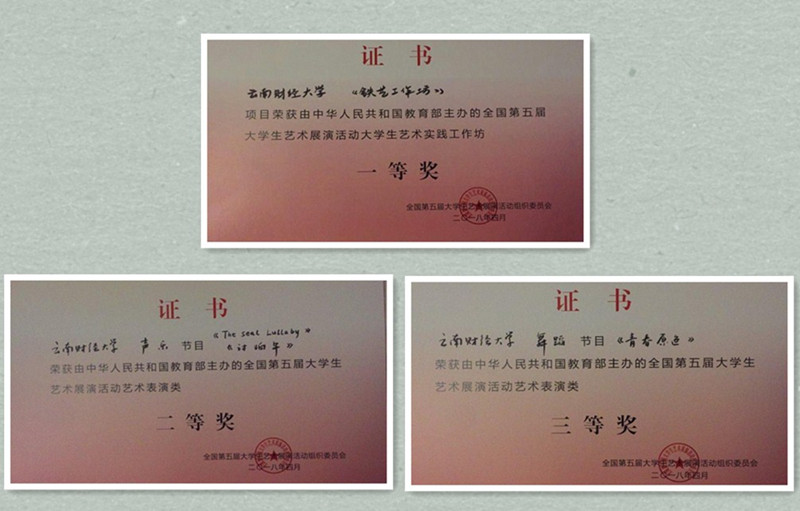 证 书
云南财经大学 《铁艺工作坊》
项目荣获由中华人民共和国教育部主办的全国第五届
大学生艺术展演活动大学生艺术实践工作坊
一 等 奖
全国第五届大学生艺术展演活动组织委员会
二〇一八年四月
证 书
《The seal Lullaby》
云南财经大学 声乐 节目
荣获由中华人民共和国教育部主办的全国第五届大学生
艺术展演活动艺术表演类
二 等 奖
全国第五届大学生艺术展演活动组织委员会
二〇一八年四月
证 书
云南财经大学 舞蹈 节目 《青春原色》
荣获由中华人民共和国教育部主办的全国第五届大学生
艺术展演活动艺术表演类
三 等 奖
全国第五届大学生艺术展演活动组织委员会
二〇一八年四月